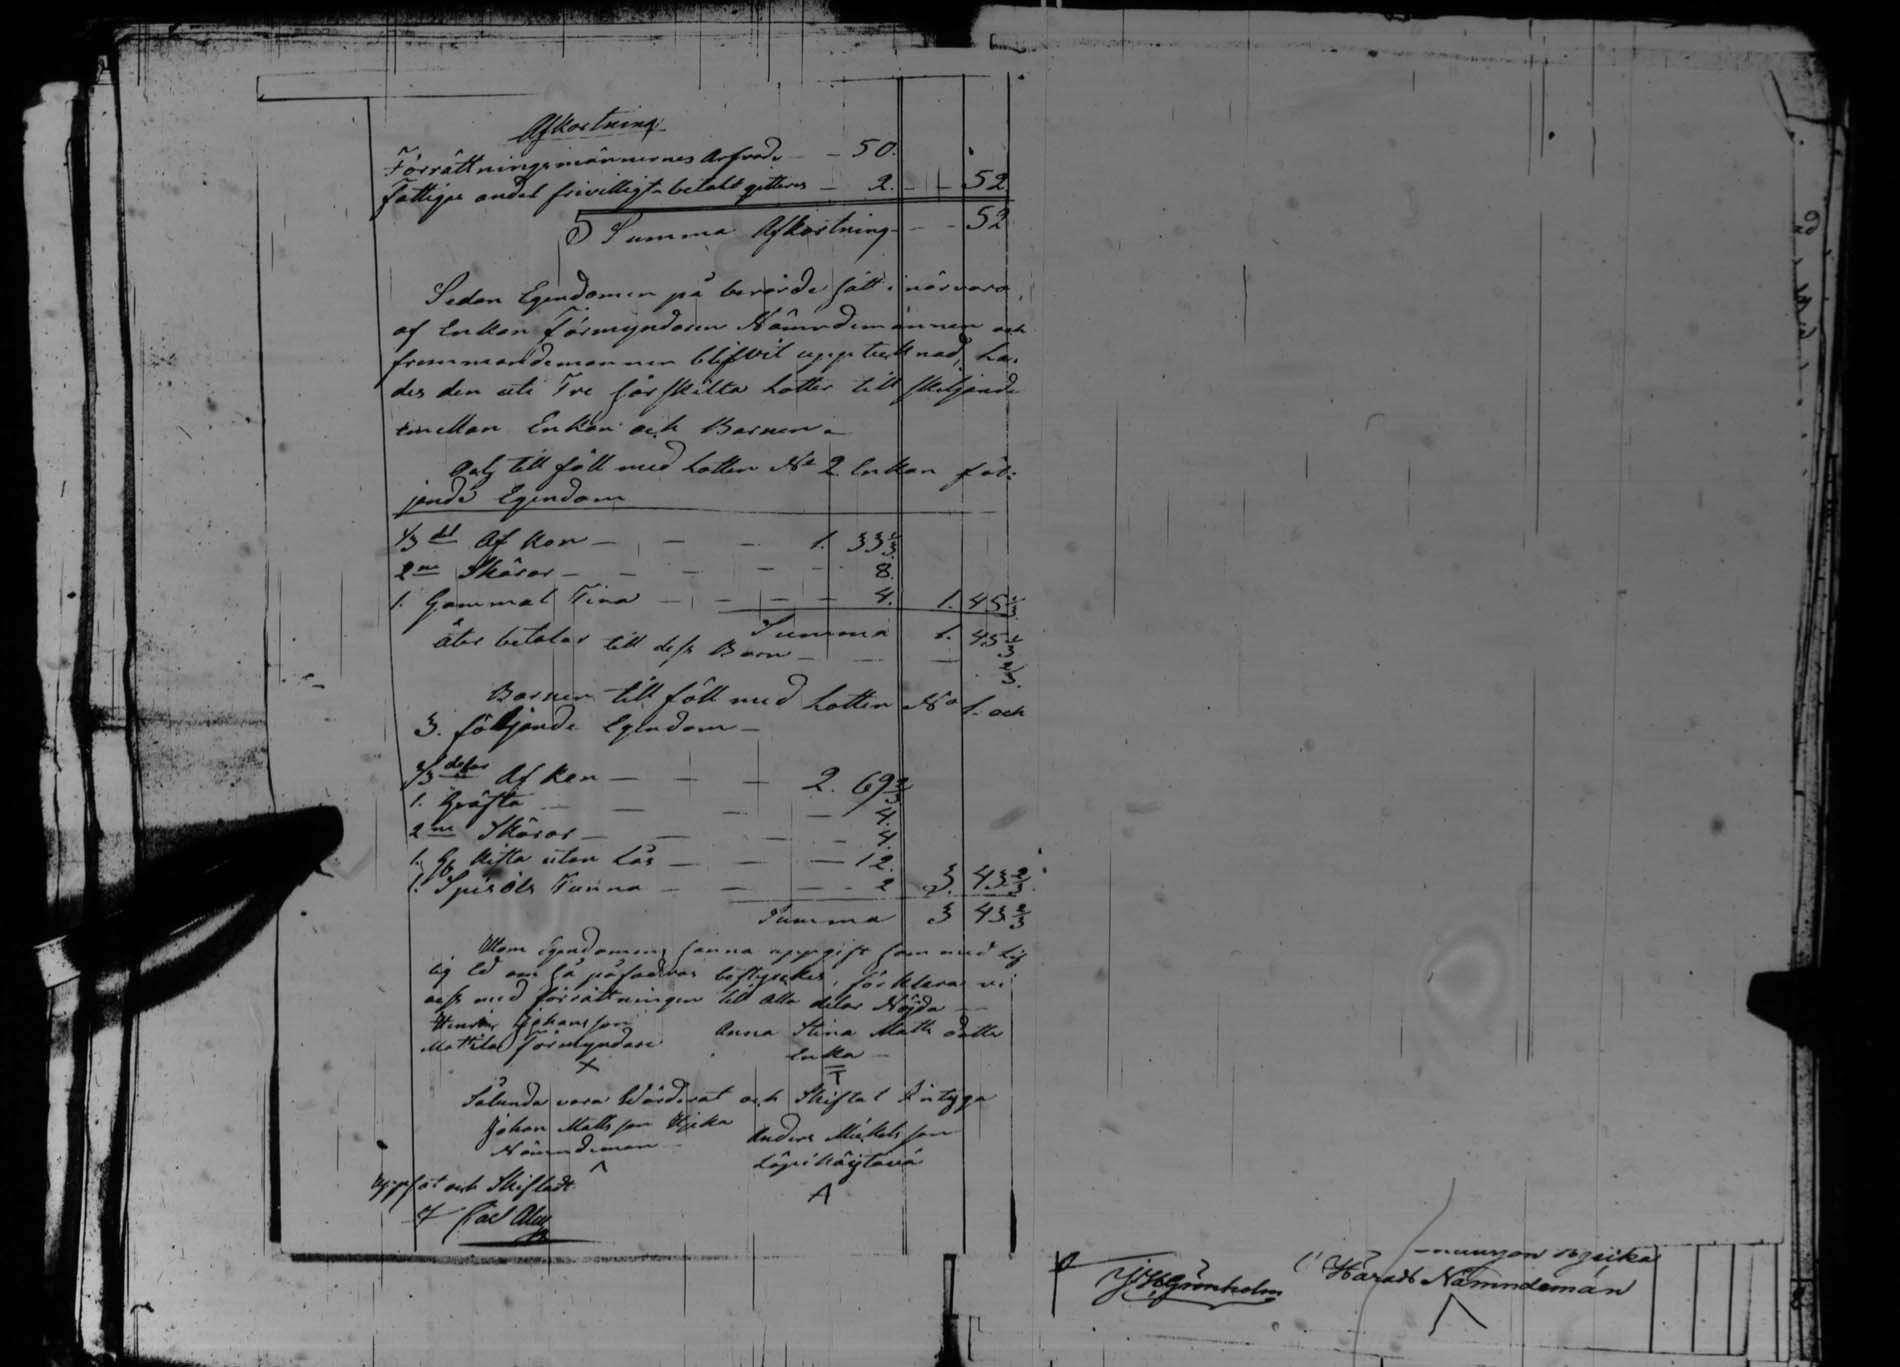 Afkortning
Förrättningsmännernes Arfvode — 50.
Fattige andel frivilligt betalt qitteras — 2. — — 52
Summa Afkortning — — 52
Sedan Egendomen på berörde sätt i närvaro
af Enkan Förmyndaren Nämndemännen och
fremmande mannen blifvit upptecknad, la-
des den uti Tre särskilta Lotter till skiljande
emellan Enkan och Barnen.
Och till föll med Lotten No 2 Enkan föl-
jande Egendom
1/3 del Af Kon — — — 1. 33 1/3
2ne Skäror — — — 8.
1. Gammal Tina — — — 4. 1. 45 1/3
Summa 1. 45 1/3
åter betalar till dess Barn — — —
Barnen till föll med Lotten No 1. och
3. följande Egendom —
2/3 delar Af Kon — — — 2. 69 2/3
1. Gräfta — — — 4.
2ne Skäror — — — 4.
1. Kista utan Lås — — — 12.
1. Spisöls Tunna — — — 2 3. 43 2/3
Summa 3 43 2/3
Om Egendomens sanna uppgift som med lif-
lig Ed om så påfordras bestyrckes, förklara vi
oss med förrättningen till alla delar Nöjda —
Henric Johansson Anna Stina Matts dotter
Mattila förmyndare Enka —
X T
Sålunda vara Värderat och Skiftat Intyga
Johan Mattsson Anders Mickelsson
Nämndeman —
A
och Skiftadt
Carl
J. H. Grönholm
Härads Nämndeman